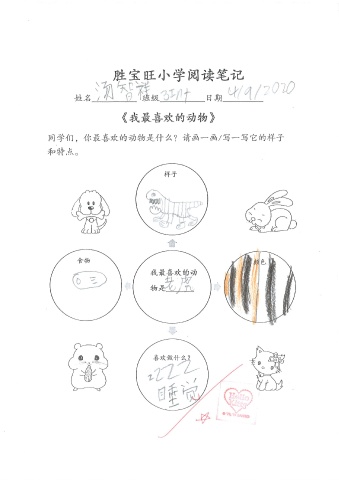 胜宝旺小学阅读笔记
姓名 汤智祥 班级 日期 4/9/2020
《我最喜欢的动物》
同学们，你最喜欢的动物是什么？请画一画/写一写它的样子
和特点。
样子
食物
我最喜欢的动
物是 老虎
颜色
喜欢做什么？
zZZZ
睡觉